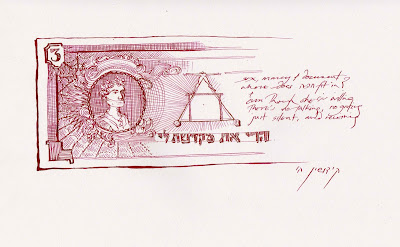 3
sex, money & documents
where does fit in?
even though she is acting
there's no talking, no giving
just silent, and receiving
הרי את מקדשת לי
קידושין ה׳